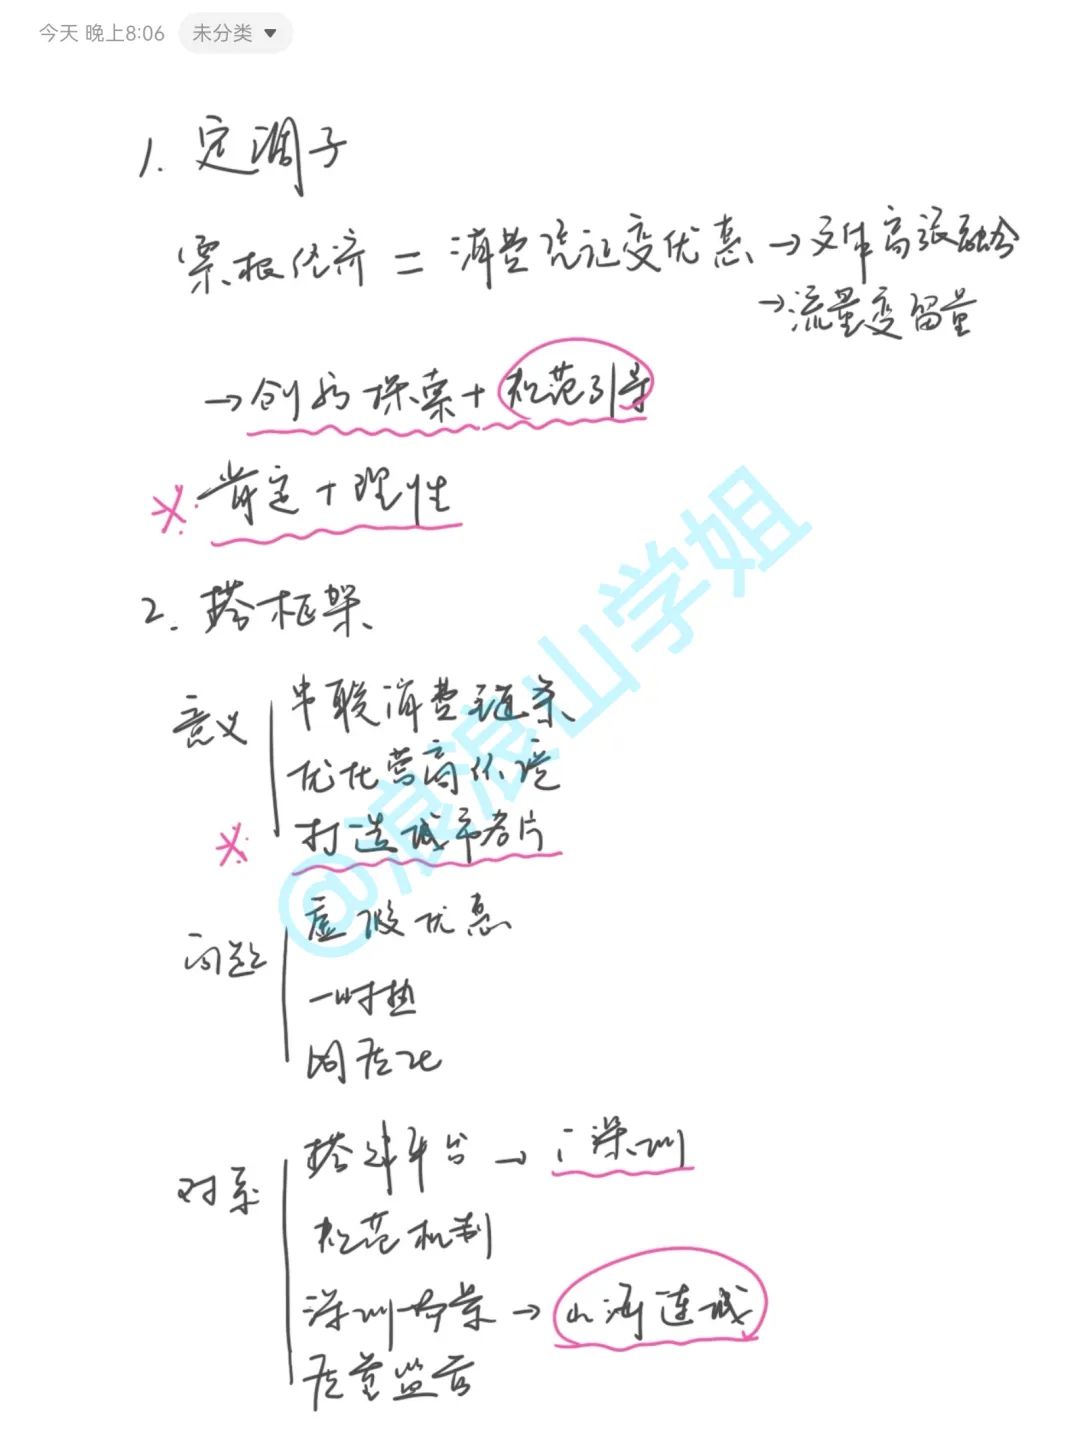 今天 晚上8:06 未分类
1. 定调子
票根经济 = 消费凭证变优惠 → 文体商旅融合
→ 流量变留量
→ 创新探索 + 规范引导
肯定 + 理性
2. 搭框架
意义
串联消费链条
优化营商环境
打造城市名片
问题
虚假优惠
一时热
同质化
对策
搭建平台 → i深圳
规范机制
深圳 → 山海连城
质量监管
@浪浪山学姐